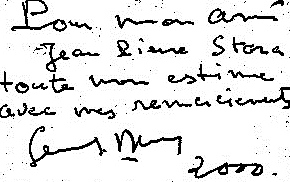 Pour mon ami
Jean Pierre Stora
toute mon estime
avec mes remerciements
2000.